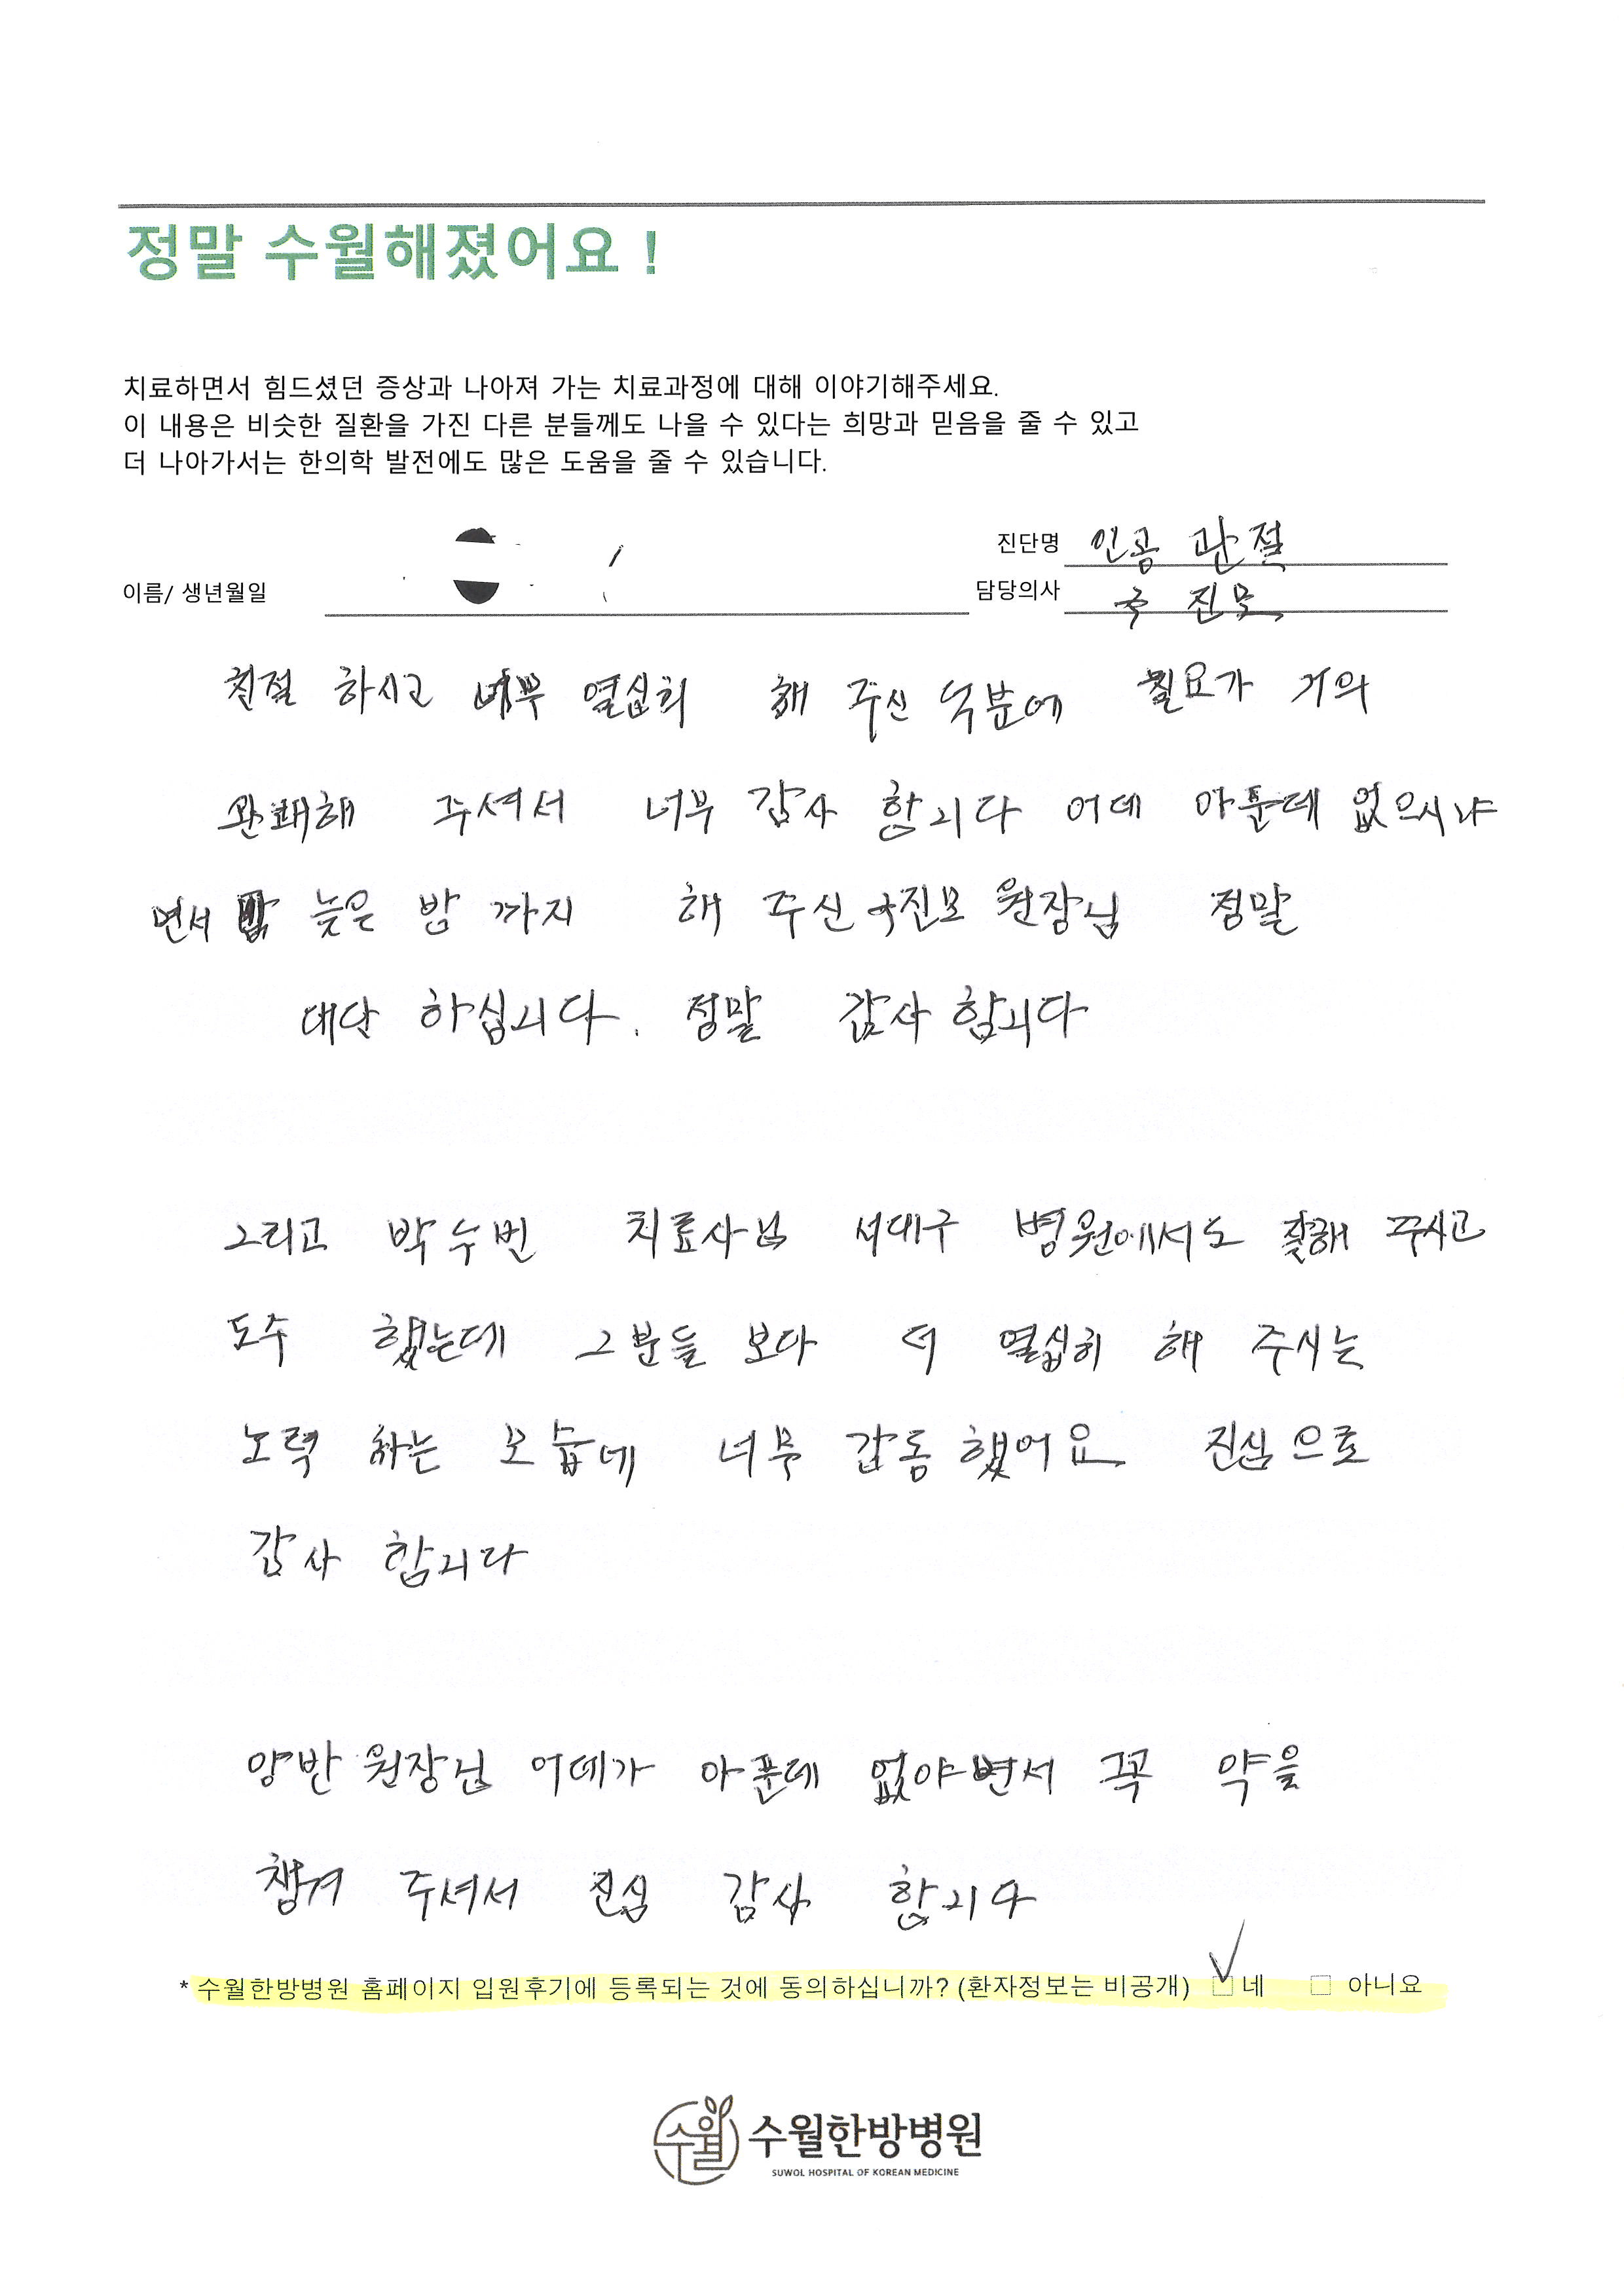 정말 수월해졌어요 !
치료하면서 힘드셨던 증상과 나아져 가는 치료과정에 대해 이야기해주세요.
이 내용은 비슷한 질환을 가진 다른 분들께도 나을 수 있다는 희망과 믿음을 줄 수 있고
더 나아가서는 한의학 발전에도 많은 도움을 줄 수 있습니다.
진단명 인공 관절
이름/ 생년월일
담당의사 국 진모
친절 하시고 너무 열심히 해 주신 덕분에 거의
완쾌해 주셔서 너무 감사 합니다 어데 아푼데 없으시냐
면서 늦은 밤 까지 해 주신 국진모 원장님 정말
대단 하십니다. 정말 감사 합니다
그리고 박수빈 치료사님 서대구 병원에서도 잘해 주시고
도수 했는데 그분들 보다 더 열심히 해 주시는
노력 하는 모습에 너무 감동 했어요 진심으로
감사 합니다
양반 원장님 어데가 아푼데 없야면서 꼭 약을
챙겨 주셔서 진심 감사 합니다
* 수월한방병원 홈페이지 입원후기에 등록되는 것에 동의하십니까? (환자정보는 비공개) 네 아니요
수월 수월한방병원
SUWOL HOSPITAL OF KOREAN MEDICINE